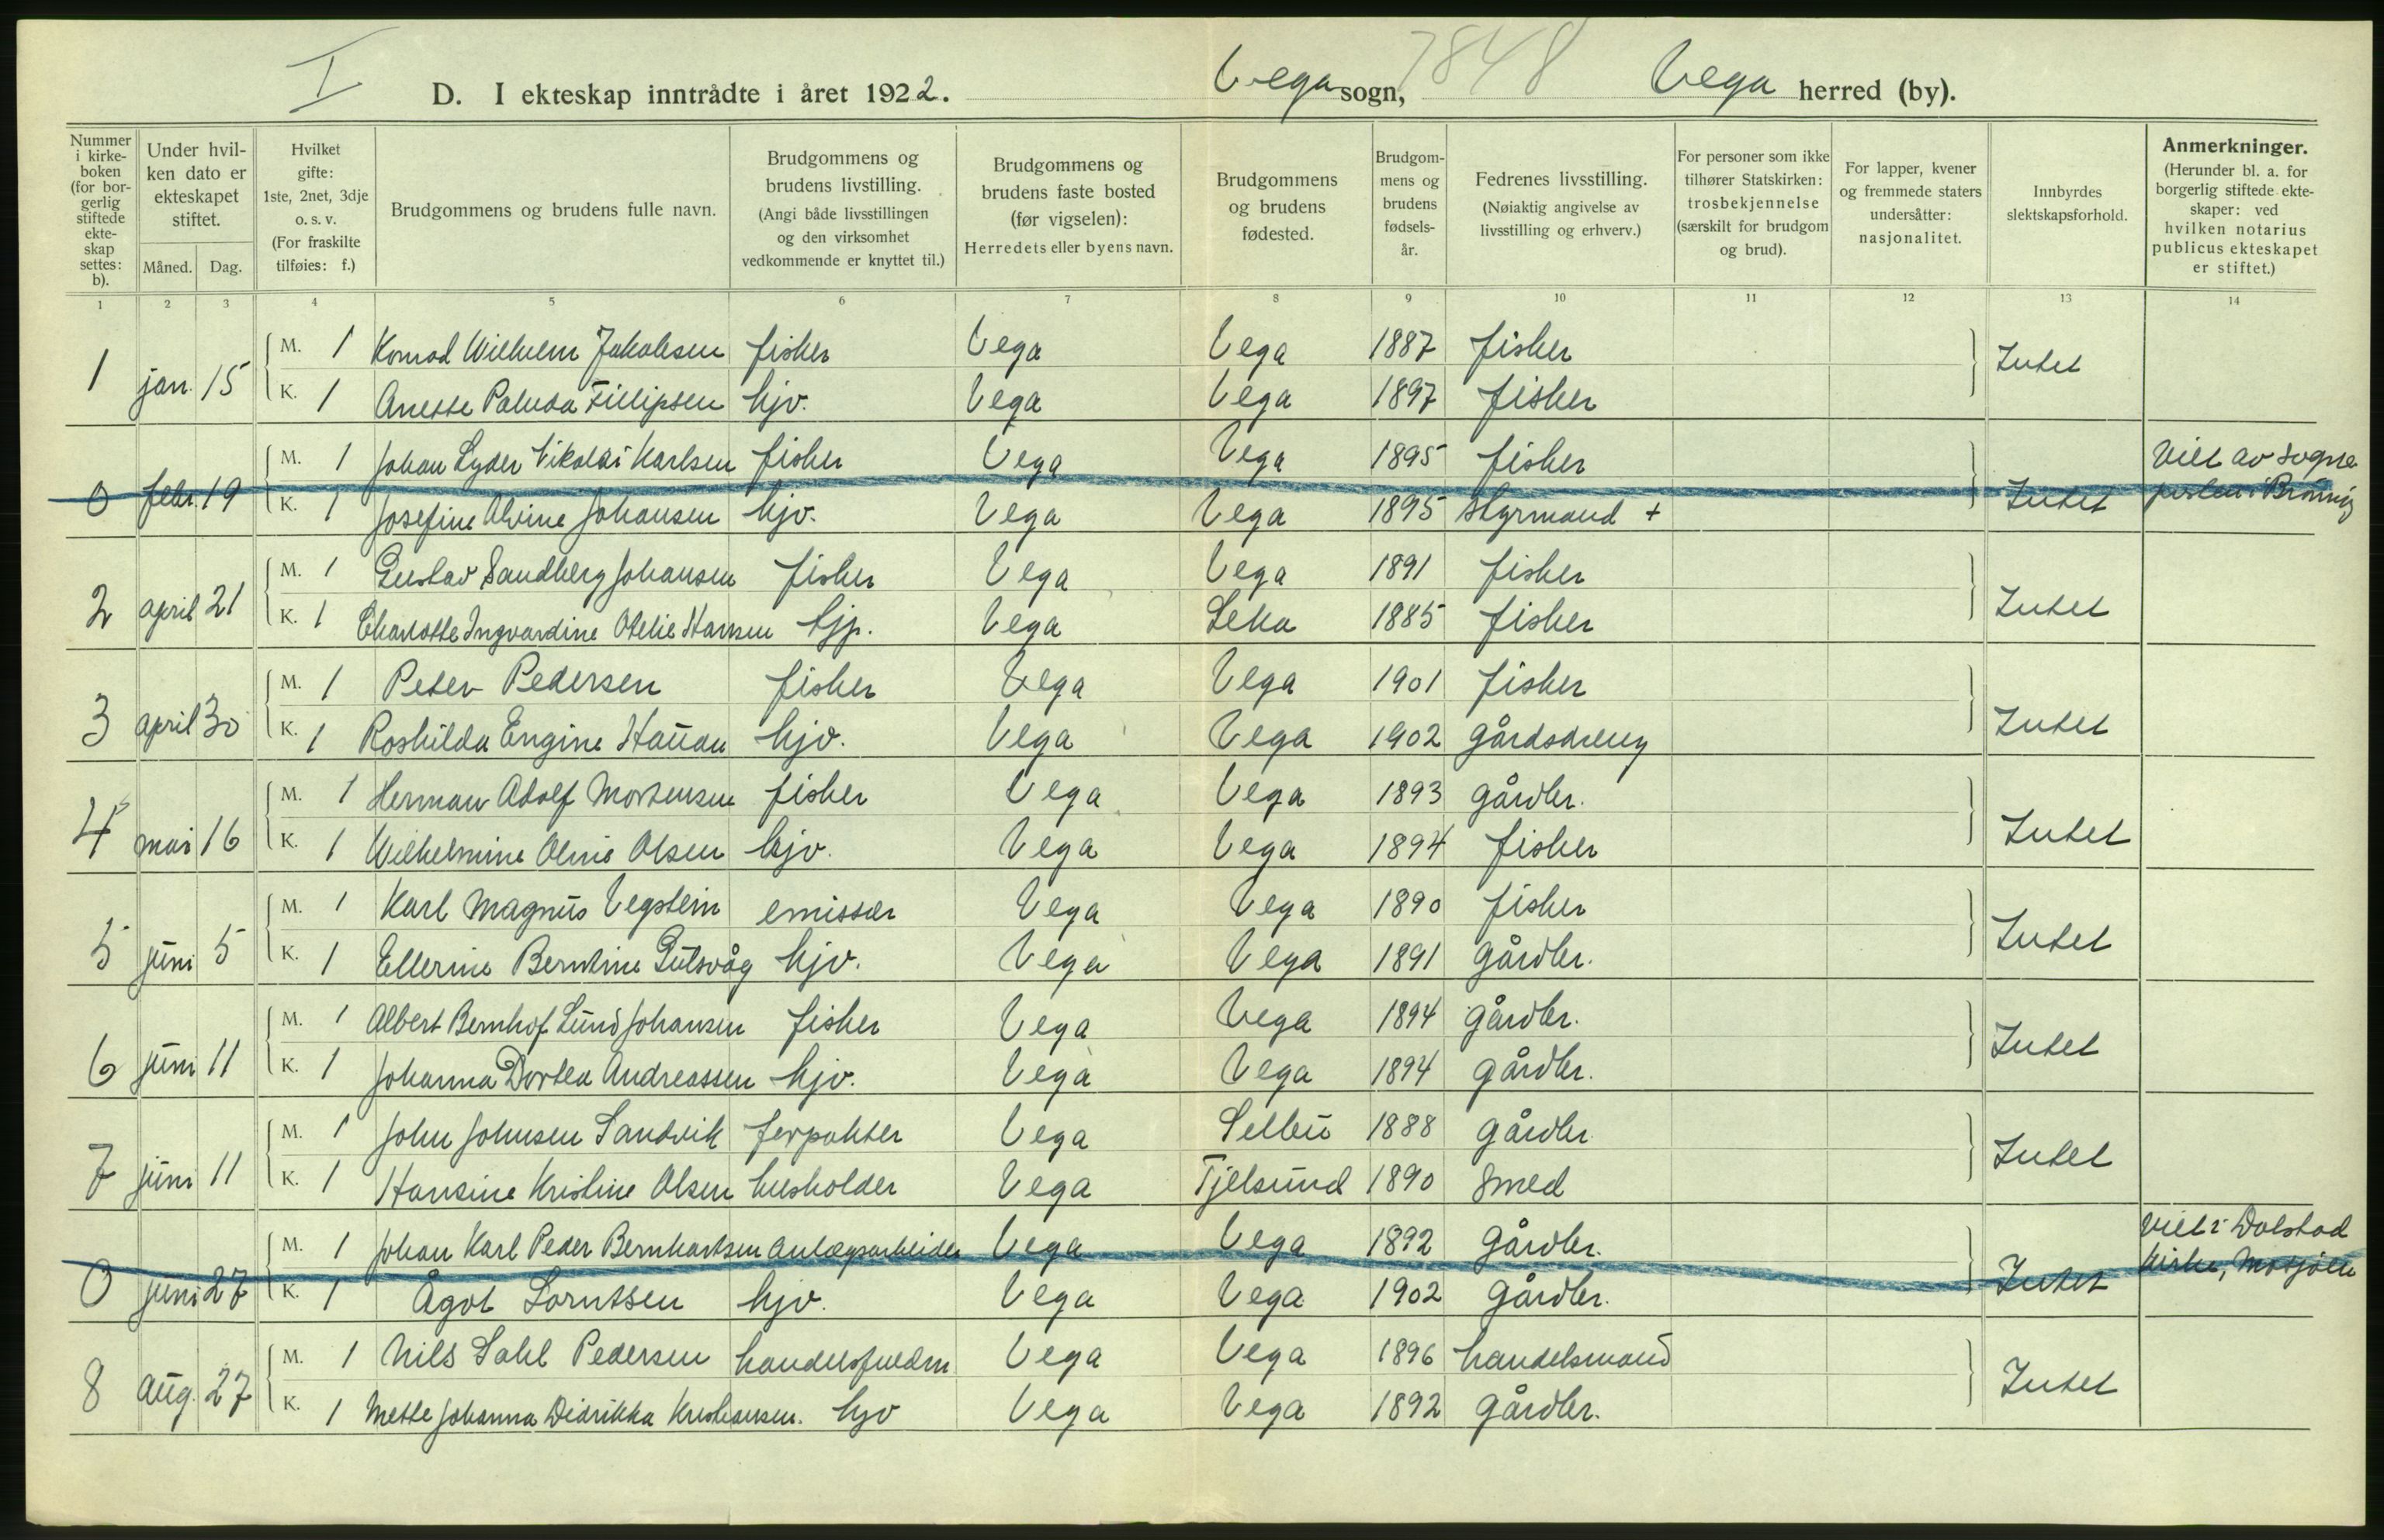 I
7848
D. I ekteskap inntrådte i året 1922. Vega sogn, Vega herred (by).
Nummer i kirkeboken (for borgerlig stiftede ekteskap settes: b).
Under hvilken dato er ekteskapet stiftet.
Måned. Dag.
Hvilket gifte: 1ste, 2net, 3dje o. s. v. (For fraskilte tilføies: f.)
Brudgommens og brudens fulle navn.
Brudgommens og brudens livstilling. (Angi både livsstillingen og den virksomhet vedkommende er knyttet til.)
Brudgommens og brudens faste bosted (før vigselen): Herredets eller byens navn.
Brudgommens og brudens fødested.
Brudgommens og brudens fødselsår.
Fedrenes livsstilling. (Nøiaktig angivelse av livsstilling og erhverv.)
For personer som ikke tilhører Statskirken: trosbekjennelse (særskilt for brudgom og brud).
For lapper, kvener og fremmede staters undersåtter: nasjonalitet.
Innbyrdes slektskapsforhold.
Anmerkninger. (Herunder bl. a. for borgerlig stiftede ekteskaper: ved hvilken notarius publicus ekteskapet er stiftet.)
1 2 3 4 5 6 7 8 9 10 11 12 13 14
1 jan. 15 M. 1 Konrad Wilhelm Jakobsen fisker Vega Vega 1887 fisker Intet
K. 1 Anette Paluda Fillipsen hjv. Vega Vega 1897 fisker
0 febr. 19 M. 1 Johan Lyder Nikolai Karlsen fisker Vega Vega 1895 fisker Intet Viet av sogne
K. 1 Josefine Alvine Johansen hjv. Vega Vega 1895 styrmand + presten i Brønnøy
2 april 21 M. 1 Gustav Sandberg Johansen fisker Vega Vega 1891 fisker Intet
K. 1 Charlotte Ingvardine Otelie Hansen hjp. Vega Leka 1885 fisker
3 april 30 M. 1 Peter Pedersen fisker Vega Vega 1901 fisker Intet
K. 1 Roshilda Engine Hauan hjv. Vega Vega 1902 gårdsdreng
4 mai 16 M. 1 Herman Adolf Mortensen fisker Vega Vega 1893 gårdbr. Intet
K. 1 Wilhelmine Oline Olsen hjv. Vega Vega 1894 fisker
5 juni 5 M. 1 Karl Magnus Vegstein emissær Vega Vega 1890 fisker Intet
K. 1 Ellerine Berntine Gutsvåg hjv. Vega Vega 1891 gårdbr.
6 juni 11 M. 1 Albert Bernhof Lund Johansen fisker Vega Vega 1894 gårdbr. Intet
K. 1 Johanna Dortea Andreassen hjv. Vega Vega 1894 gårdbr.
7 juni 11 M. 1 John Johnsen Sandvik forpakter Vega Selbu 1888 gårdbr. Intet
K. 1 Hansine Kristine Olsen husholder Vega Tjelsund 1890 smed
0 juni 27 M. 1 Johan Karl Peder Bernhartsen anlægsarbeider Vega Vega 1892 gårdbr. Intet Viet i Dolstad
K. 1 Ågot Lorntsen hjv. Vega Vega 1902 gårdbr. kirke, Mosjøen
8 aug. 27 M. 1 Nils Dahl Pedersen handelsfuldm Vega Vega 1896 handelsmand Intet
K. 1 Mette Johanna Didrikka Kristiansen. hjv Vega Vega 1892 gårdbr.